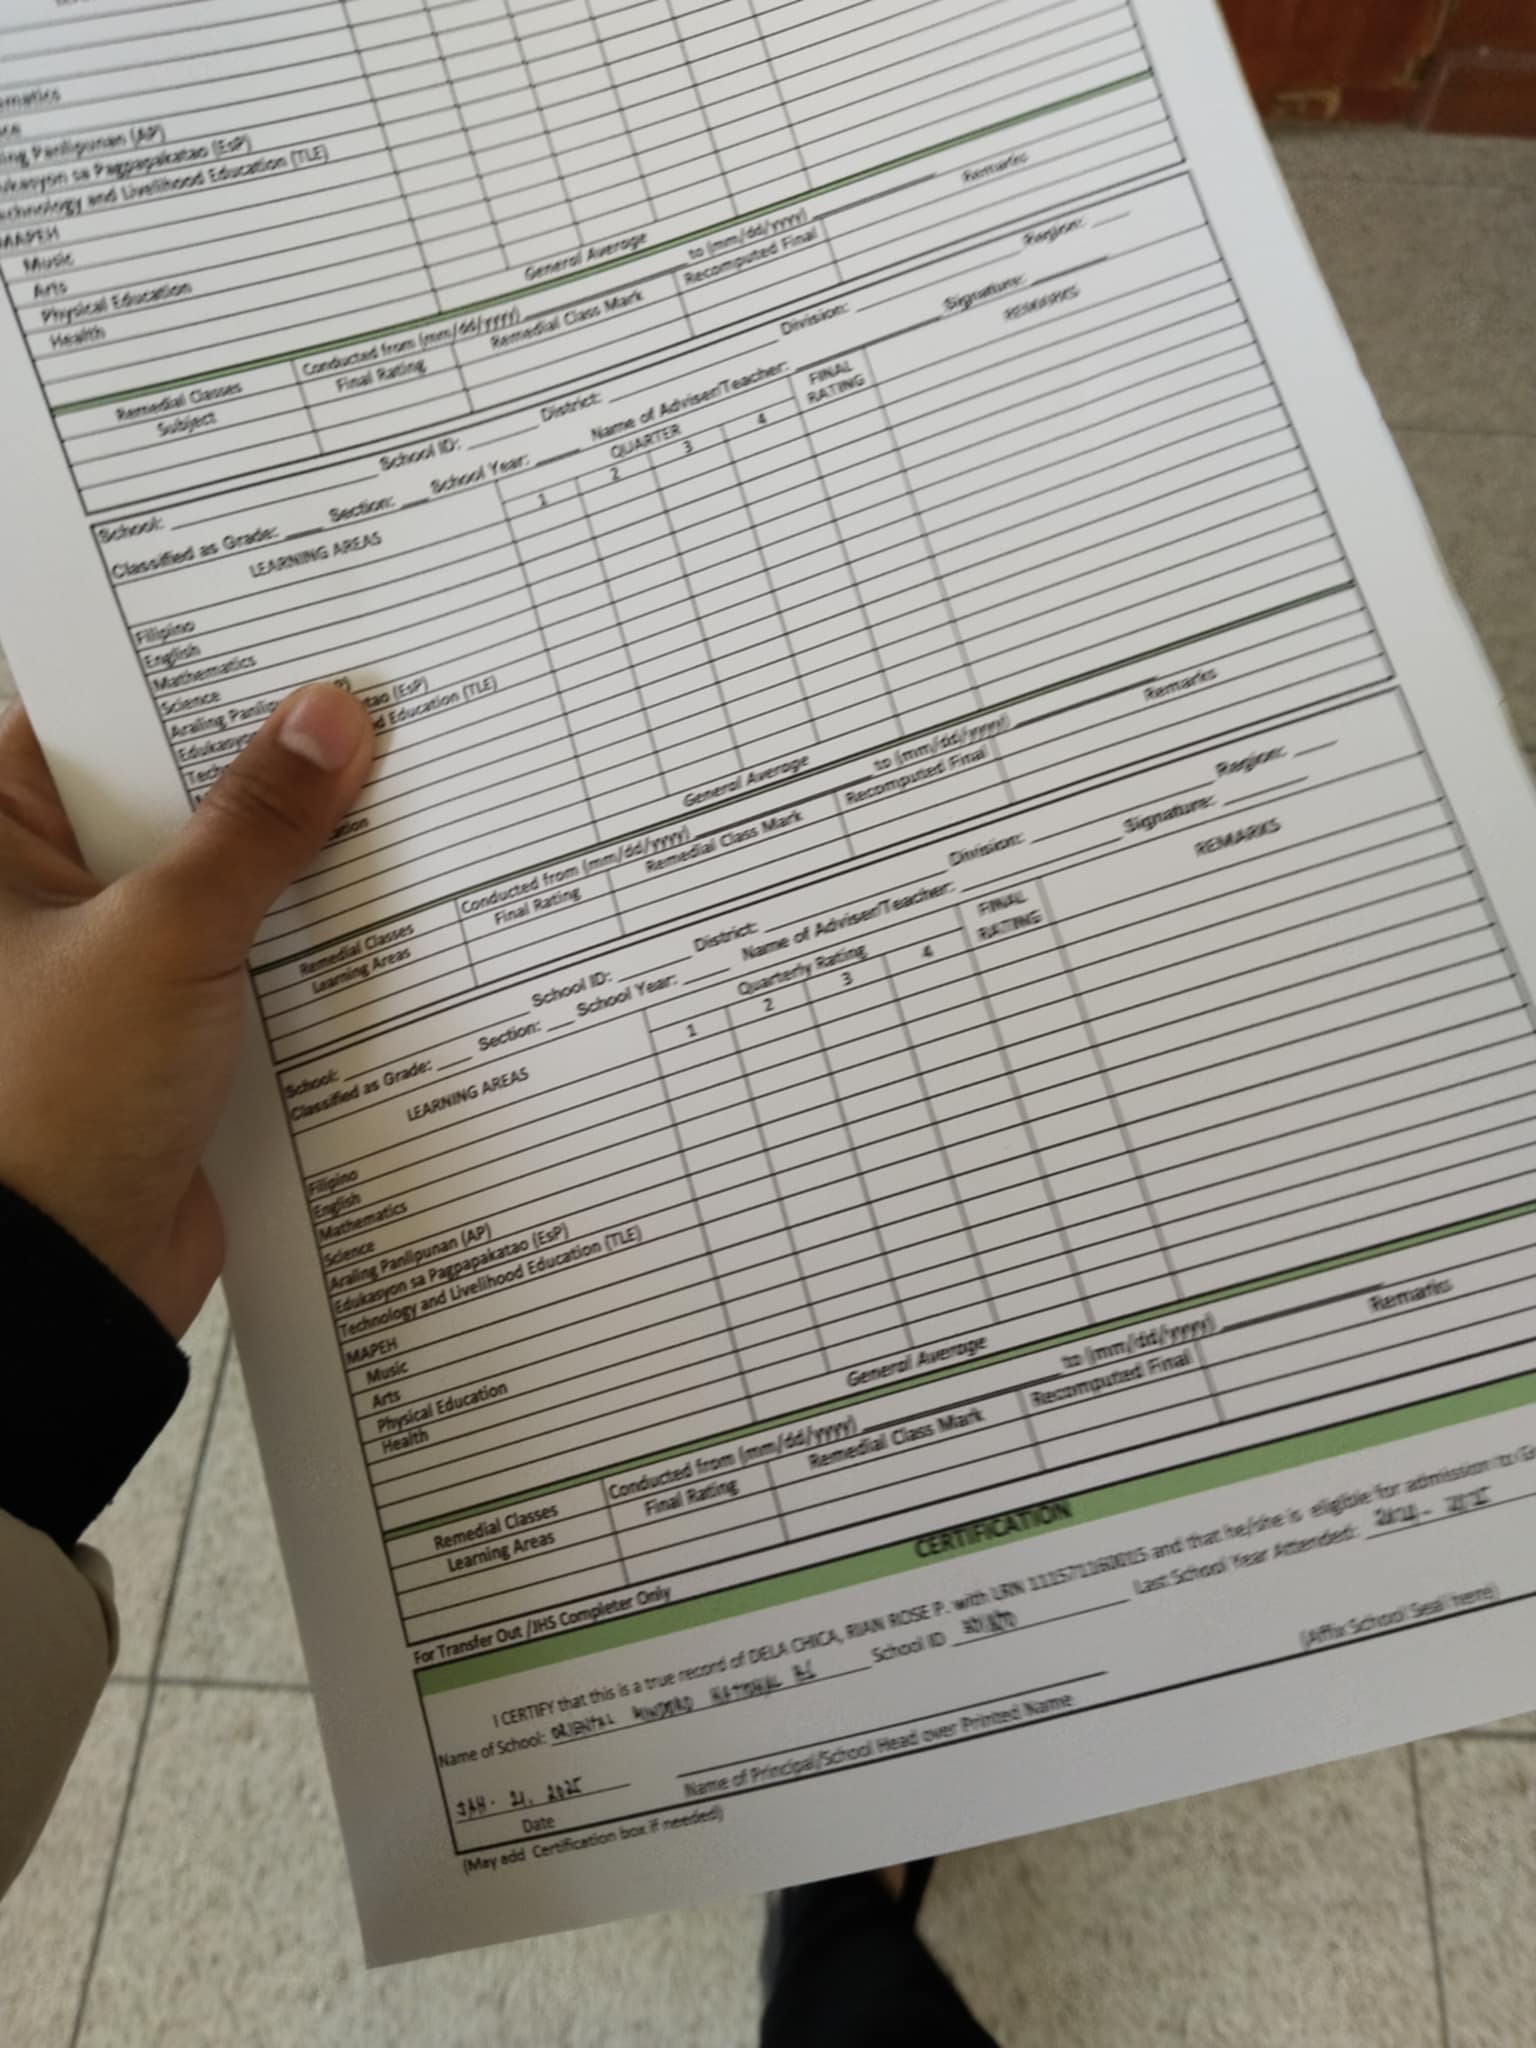 ematics
ing Panlipunan (AP)
ukasyon sa Pagpapakatao (EsP)
echnology and Livelihood Education (TLE)
MAPEH
Music
Arts
Physical Education
Health
General Average
Remedial Classes Conducted from (mm/dd/yyyy) ________ to (mm/dd/yyyy) ________
Subject Final Rating Remedial Class Mark Recomputed Final Remarks
School: ________ School ID: ________ District: ________ Division: ________ Region: ____
Classified as Grade: ____ Section: ____ School Year: ____ Name of Adviser/Teacher: ________ Signature: ________
LEARNING AREAS QUARTER FINAL RATING REMARKS
1 2 3 4
Filipino
English
Mathematics
Science
Araling Panlip P)
Edukasyo atao (EsP)
Tech d Education (TLE)
ation
General Average
Remedial Classes Conducted from (mm/dd/yyyy) ________ to (mm/dd/yyyy) ________
Learning Areas Final Rating Remedial Class Mark Recomputed Final Remarks
School: ________ School ID: ________ District: ________ Division: ________ Region: ____
Classified as Grade: ____ Section: ____ School Year: ____ Name of Adviser/Teacher: ________ Signature: ________
LEARNING AREAS Quarterly Rating FINAL RATING REMARKS
1 2 3 4
Filipino
English
Mathematics
Science
Araling Panlipunan (AP)
Edukasyon sa Pagpapakatao (EsP)
Technology and Livelihood Education (TLE)
MAPEH
Music
Arts
Physical Education
Health
General Average
Remedial Classes Conducted from (mm/dd/yyyy) ________ to (mm/dd/yyyy) ________
Learning Areas Final Rating Remedial Class Mark Recomputed Final Remarks
For Transfer Out /JHS Completer Only
CERTIFICATION
I CERTIFY that this is a true record of DELA CHICA, RIAN ROSE P. with LRN and that he/she is eligible for admission to
Name of School: ORIENTAL MINDORO NATIONAL School ID Last School Year Attended:
JAN. 21, 2025
Date Name of Principal/School Head over Printed Name (Affix School Seal here)
(May add Certification box if needed)